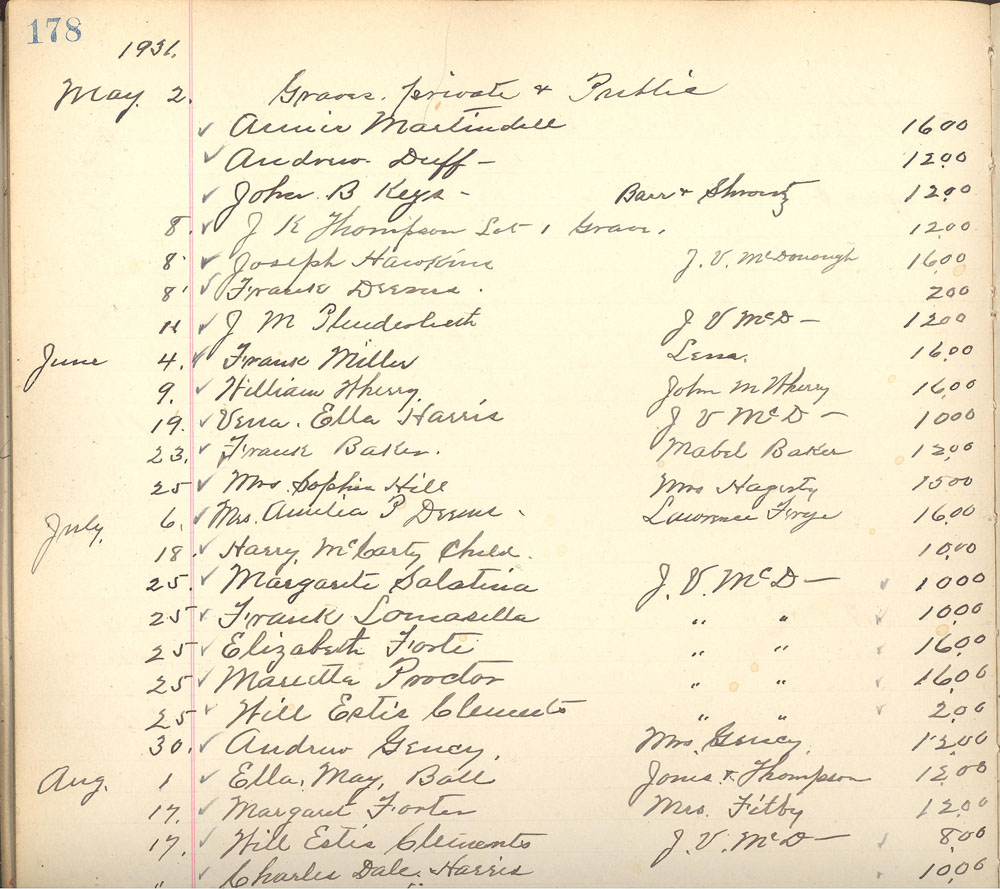 178
1931.
May 2. Graves. private & Public
✓ Annie Martindell 16.00
✓ Andrew Duff - 12.00
✓ John B Keys - Baer & Shrontz 12.00
8. ✓ J K Thompson Lot 1 Grave. 12.00
8 ✓ Joseph Hawkins J. V. McDonough 16.00
8 ✓ Frank Deems. 2.00
11 ✓ J M Plenderleith J V McD — 12.00
June 4. ✓ Frank Miller 16.00
9. ✓ William Wherry John M Wherry 16.00
19. ✓ Verna. Ella Harris J V McD — 10.00
23. ✓ Frank Baker. Mabel Baker 12.00
25 ✓ Mrs. Sophia Hill Mrs Hagerty 15.00
July 6. ✓ Mrs. Amelia P Deems. Lawrence Frye 16.00
18. ✓ Harry McCarty Child. 10.00
25. ✓ Margarite Salatina J. V. McD — ✓ 10.00
25 ✓ Frank Lomasella " " ✓ 10.00
25 ✓ Elizabeth Forte " " ✓ 16.00
25 ✓ Marietta Proctor " " ✓ 16.00
25 ✓ Will Estis Clements " " ✓ 2.00
30. ✓ Andrew Gency. Mrs. Gency. 12.00
Aug. 1 ✓ Ella. May. Ball Jones & Thompson 12.00
17. ✓ Margaret Forter Mrs. Fitby 12.00
17. ✓ Will Estis Clements J. V. McD — ✓ 8.00
" ✓ Charles Dale. Harris " ✓ 10.00